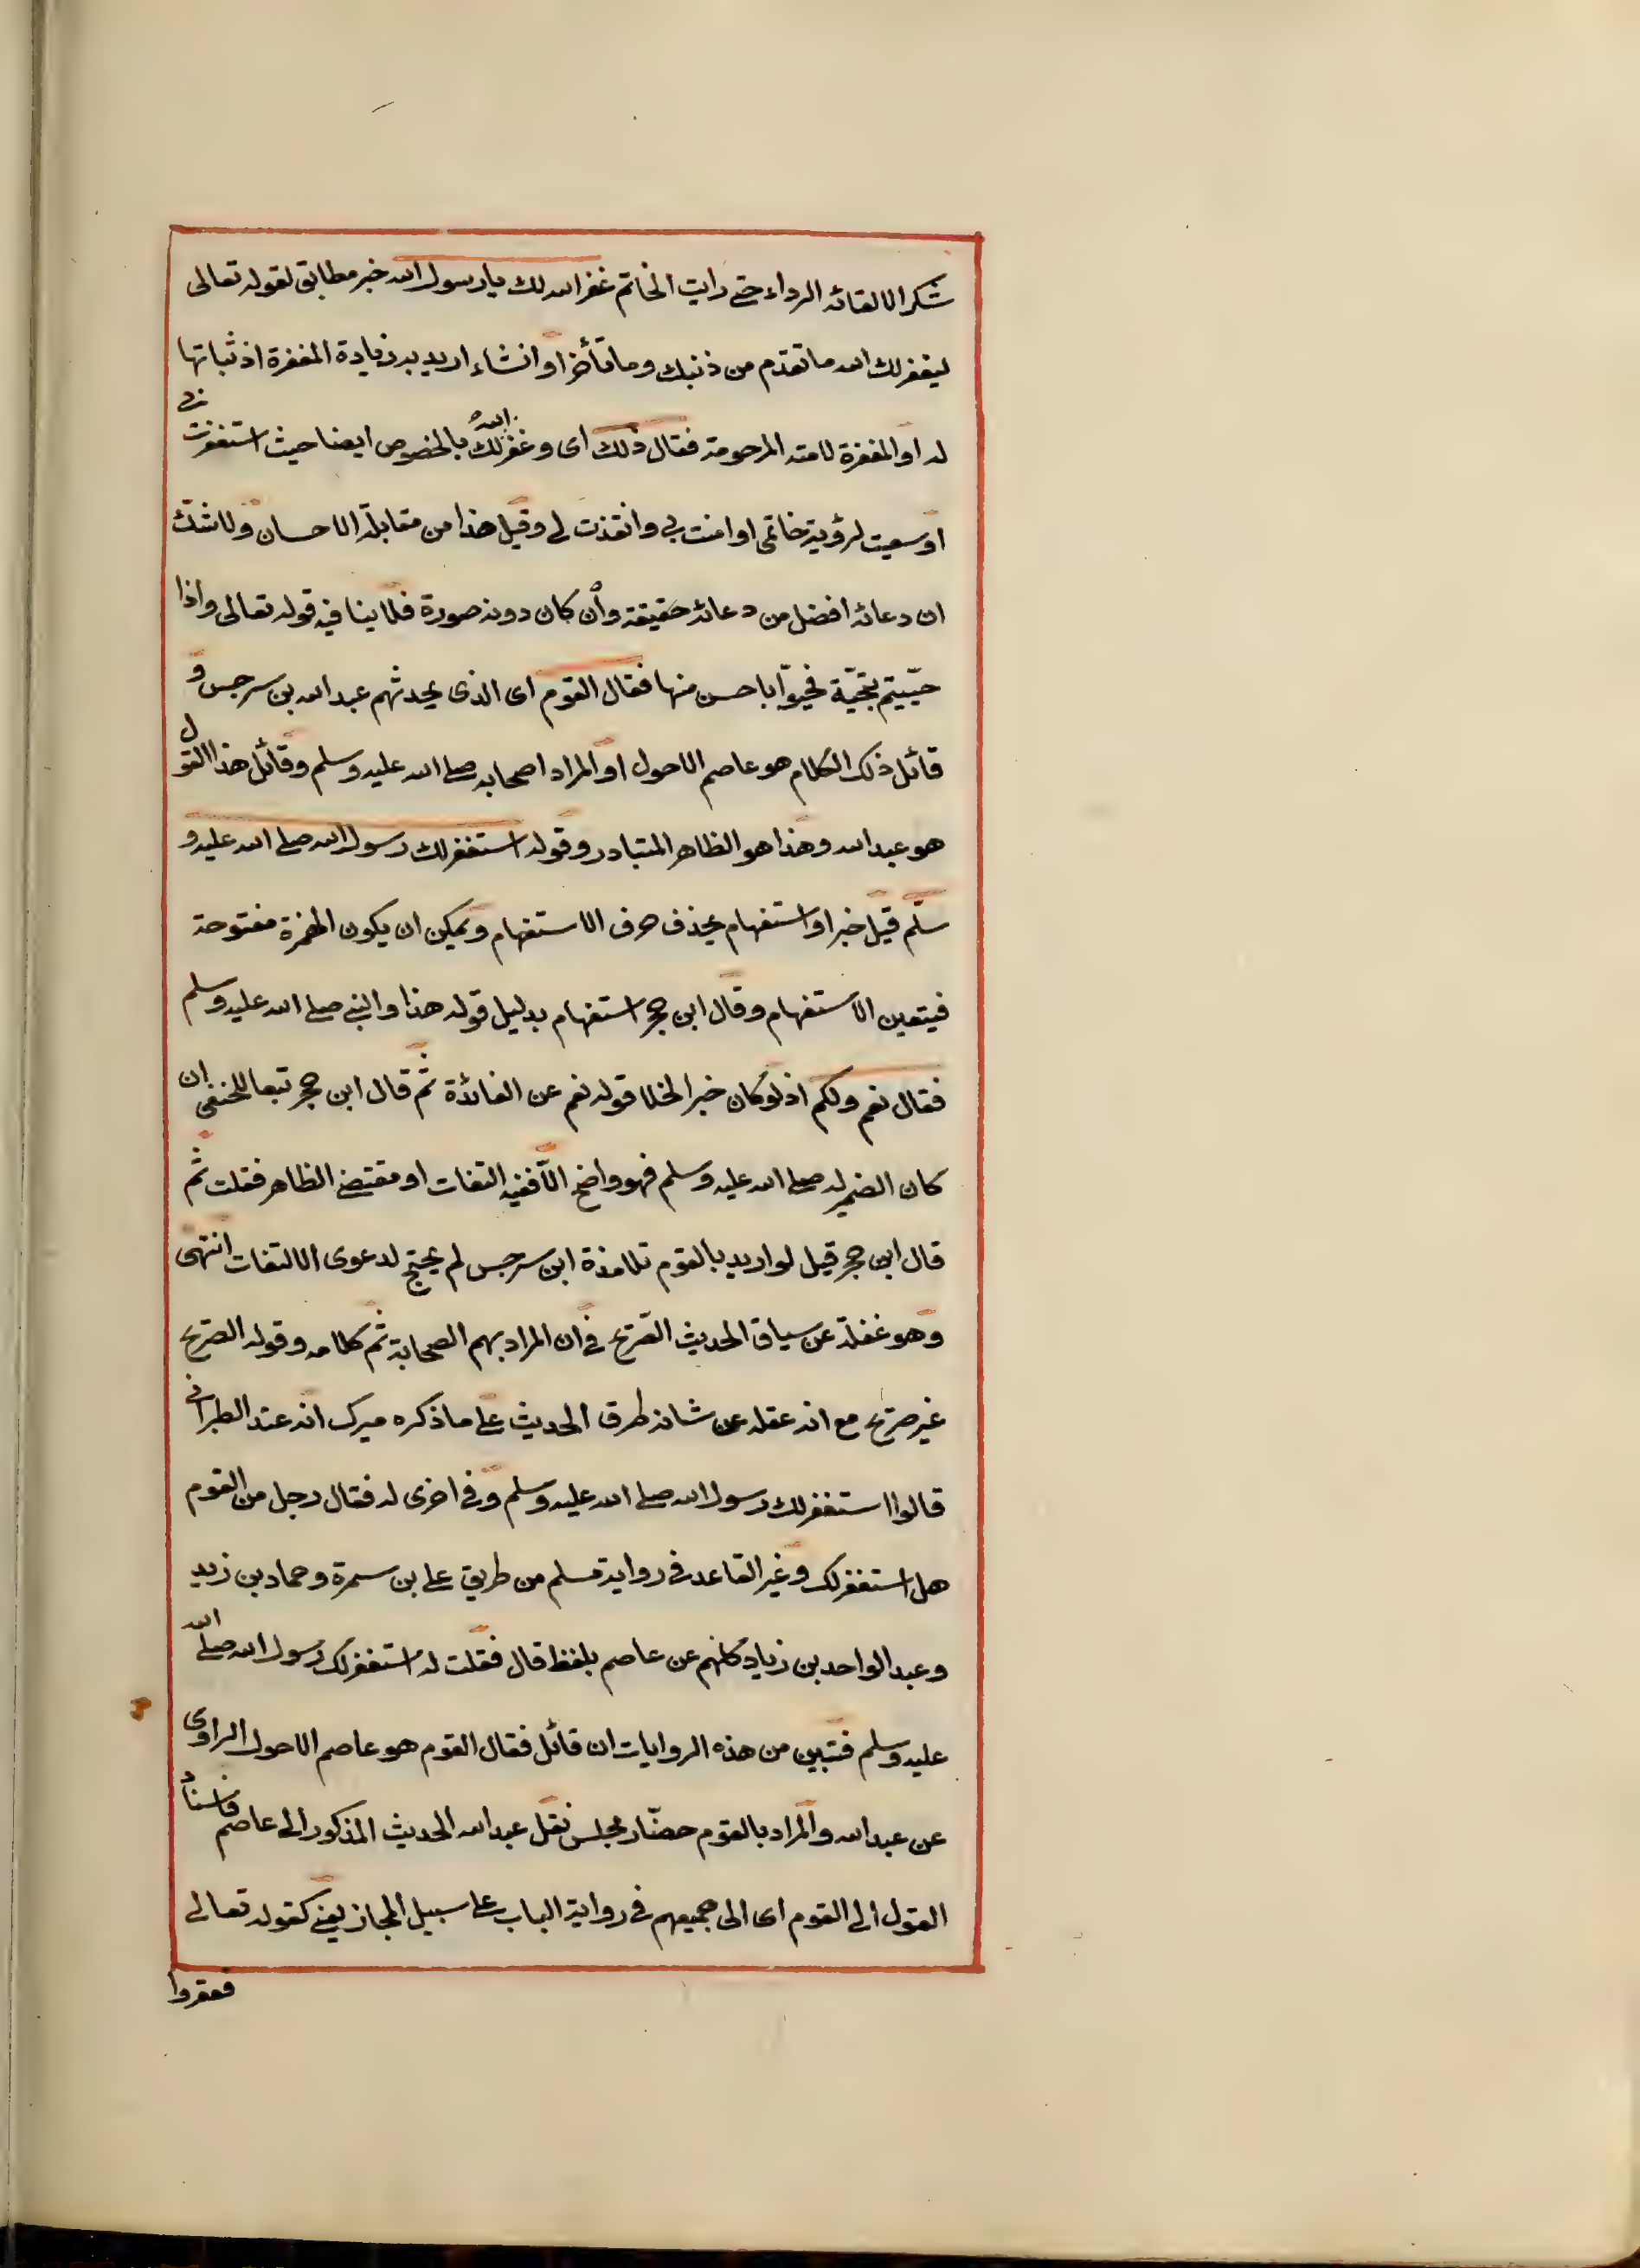 شكرا لالقائه الرداء حتى رايت الخاتم غفر الله لك يا رسول الله خبر مطابق لقوله تعالى
ليغفر لك الله ما تقدم من ذنبك وما تأخر او انشاء اريد به زيادة المغفرة اذ ثباتها
له او المغفرة لامته المرحومة فقال ولك اى وغفر لك الله بالخصوص ايضا حيث استغفرت لى
او سعيت لرؤية خاتمى او امنت بى وانقذت لى وقيل هذا من مقابلة الاحسان ولا شك
ان دعائه افضل من دعائه حقيقة وان كان دونه صورة فلا ينافيه قوله تعالى واذا
حيّيتم بتحيّة فحيوّا باحسن منها فقال القوم اى الذى يحدثهم عبد الله بن سرجس و
قائل ذلك الكلام هو عاصم الاحول او المراد اصحابه صلى الله عليه وسلم وقائل هذا القول
هو عبد الله وهذا هو الظاهر المتبادر وقوله استغفر لك رسول الله صلى الله عليه و
سلّم قيل خبر او استفهام بحذف حرف الاستفهام ويمكن ان يكون الهمزة مفتوحة
فيتعين الاستفهام وقال ابن حجر استفهام بدليل قوله هذا والنبى صلى الله عليه وسلم
فقال نعم ولكم اذ لو كان خبرا لخلا قوله نعم عن الفائدة ثم قال ابن حجر تبعا للحنفى ان
كان الضمير له صلى الله عليه وسلم فهو واضح الا ففيه التفات او مقتضى الظاهر فقلت ثم
قال ابن حجر قيل لو اريد بالقوم تلامذة ابن سرجس لم يحتج لدعوى الالتفات انتهى
وهو غفلة عن سياق الحديث الصّريح فى ان المراد بهم الصحابة ثم كلامه وقوله الصّريح
غير صريح مع انه غفله عن شانه طرق الحديث على ما ذكره ميرك انه عند الطبرانى
قالوا استغفر لك رسول الله صلى الله عليه وسلم وفى اخرى له فقال رجل من القوم
هل استغفر لك وغير القاعد فى رواية مسلم من طريق على بن سمرة وحماد بن زيد
وعبد الواحد بن زياد كلهم عن عاصم بلفظ قال فقلت له استغفر لك رسول الله صلى الله
عليه وسلم فتبين من هذه الروايات ان قائل فقال القوم هو عاصم الاحول الراوى
عن عبد الله والمراد بالقوم حضّار مجلس نقل عبد الله الحديث المذكور الى عاصم فاسناد
القول الى القوم اى الى جميعهم فى رواية الباب على سبيل المجاز يعنى كقوله تعالى
فعقروا